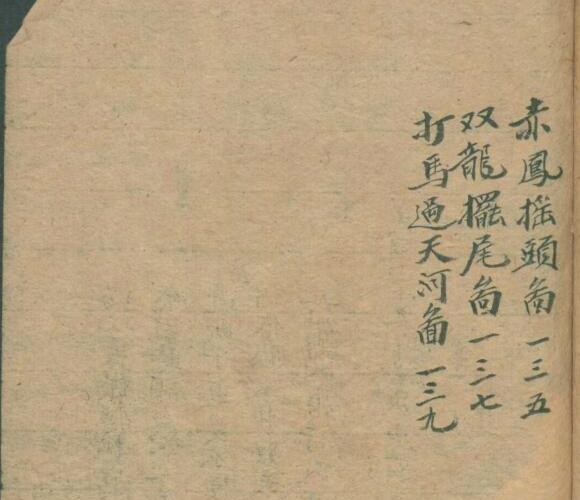 赤鳳摇頭啚 一三五
双龍擺尾啚 一三七
打馬過天河啚 一三九